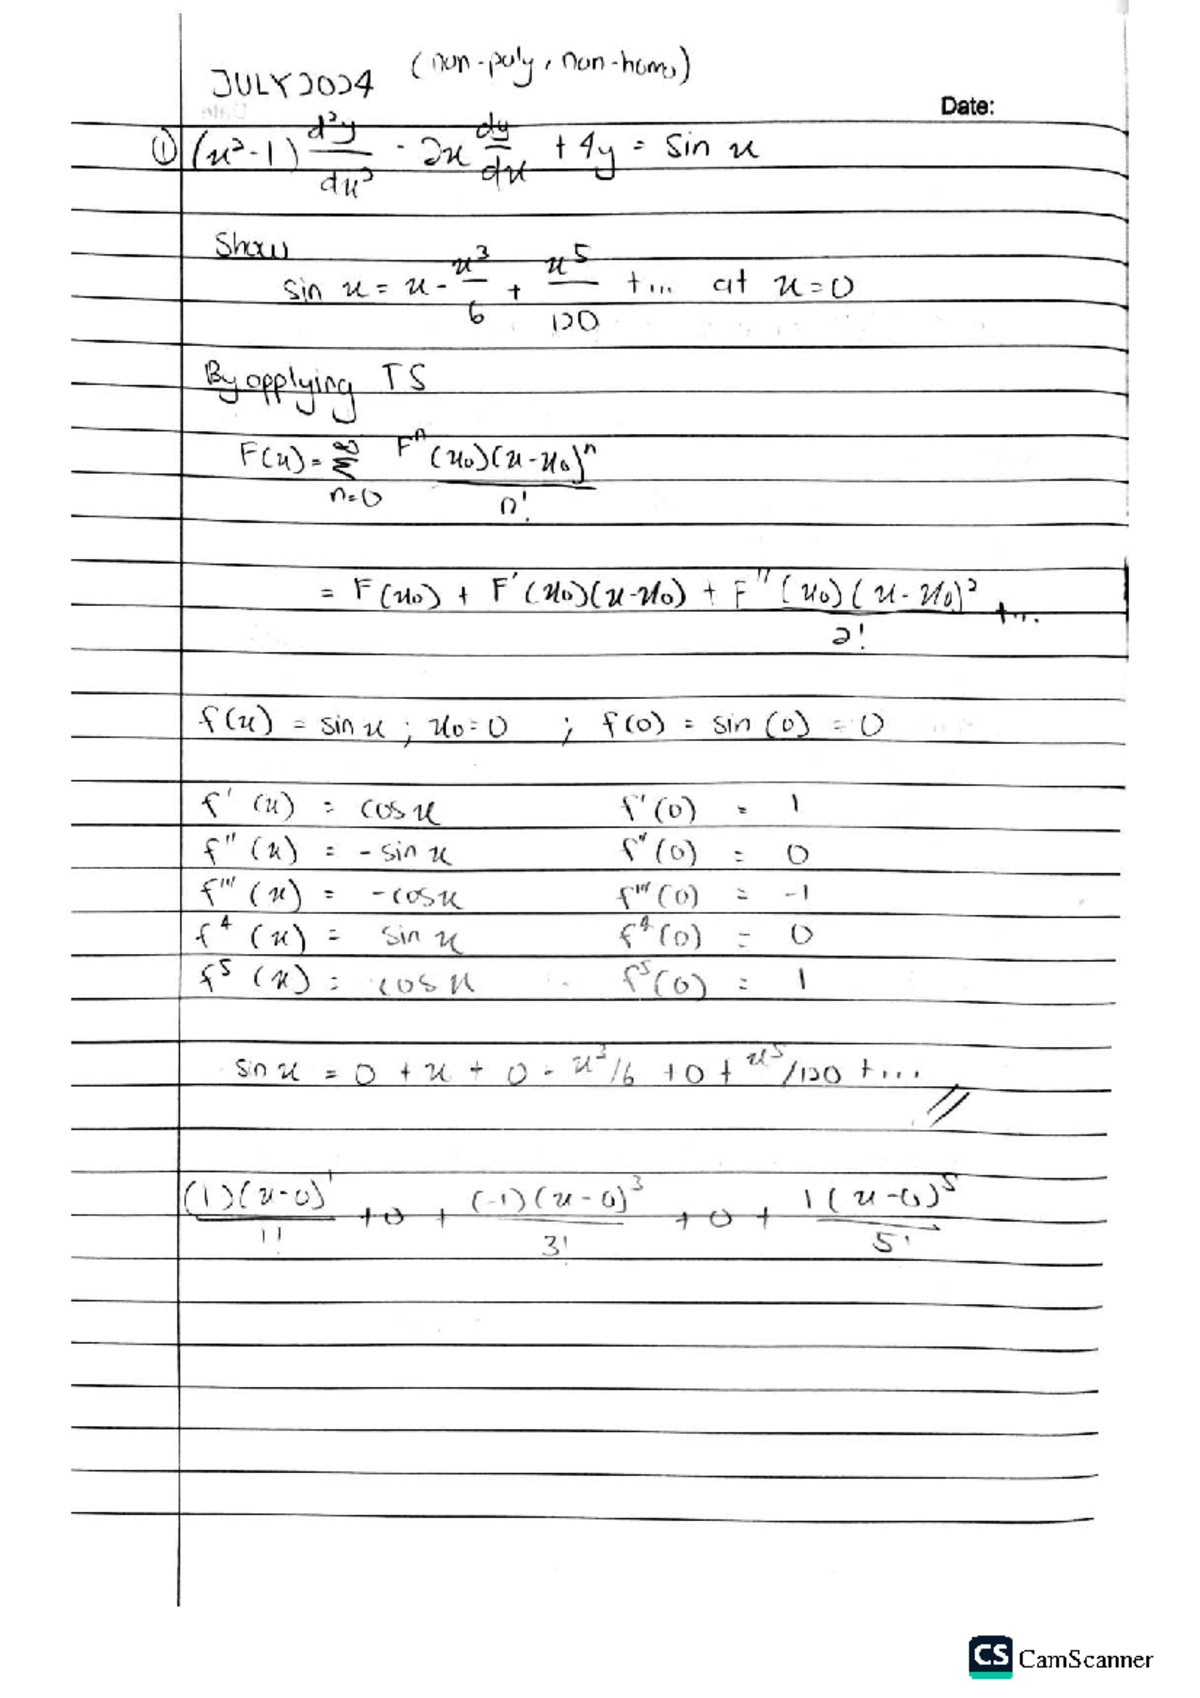 JULY 2024 (non-poly, non-homo)
Date:
① (x²-1) d²y/dx² - 2x dy/dx + 4y = sin x
Show
sin x = x - x³/6 + x⁵/120 + ... at x=0
By applying TS
F(x) = ∞Σn=0 Fⁿ(x₀)(x-x₀)ⁿ/n!
= F(x₀) + F'(x₀)(x-x₀) + F''(x₀)(x-x₀)²/2! + ...
f(x) = sin x ; x₀=0 ; f(0) = sin(0) = 0
f'(x) = cos x f'(0) = 1
f''(x) = -sin x f''(0) = 0
f'''(x) = -cos x f'''(0) = -1
f⁴(x) = sin x f⁴(0) = 0
f⁵(x) = cos x f⁵(0) = 1
sin x = 0 + x + 0 - x³/6 + 0 + x⁵/120 + ...
(1)(x-0)¹/1! + 0 + (-1)(x-0)³/3! + 0 + 1(x-0)⁵/5!
CS CamScanner